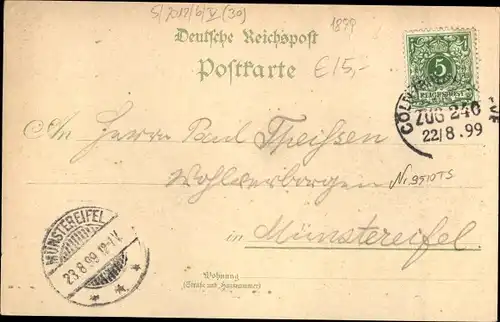 S/2012/6/V(30)
1899
Deutsche Reichspost
Postkarte
€15,-
5
PFENNIG
CÖLN
ZUG 240
22/8.99
VE
An Herrn Paul Theissen
Wohlverborgen
N. 9510TS
in Münstereifel
MÜNSTEREIFEL
23.8.99.12-1.V.
Wohnung
(Straße und Hausnummer)